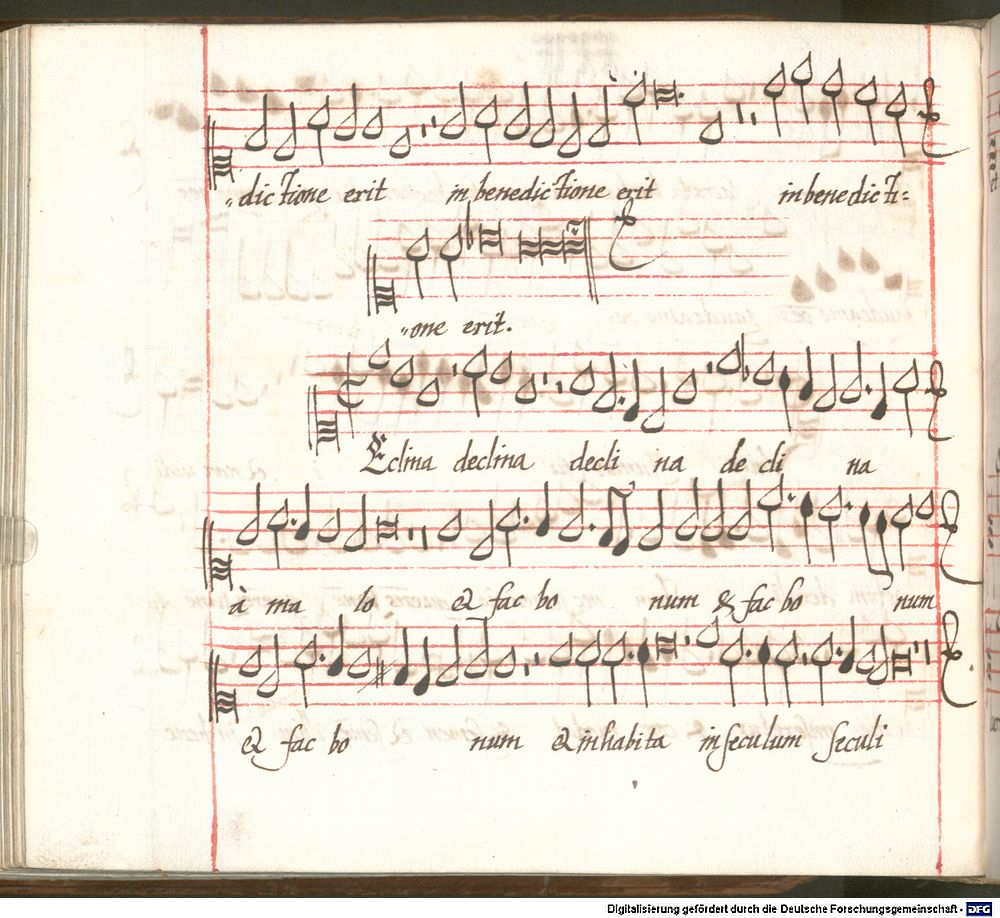 „dictione erit in benedictione erit in benedicti=
„one erit.
Eclina declina decli na de cli na
à ma lo & fac bo num & fac bo num
& fac bo num & inhabita in seculum seculi
Digitalisierung gefördert durch die Deutsche Forschungsgemeinschaft - DFG